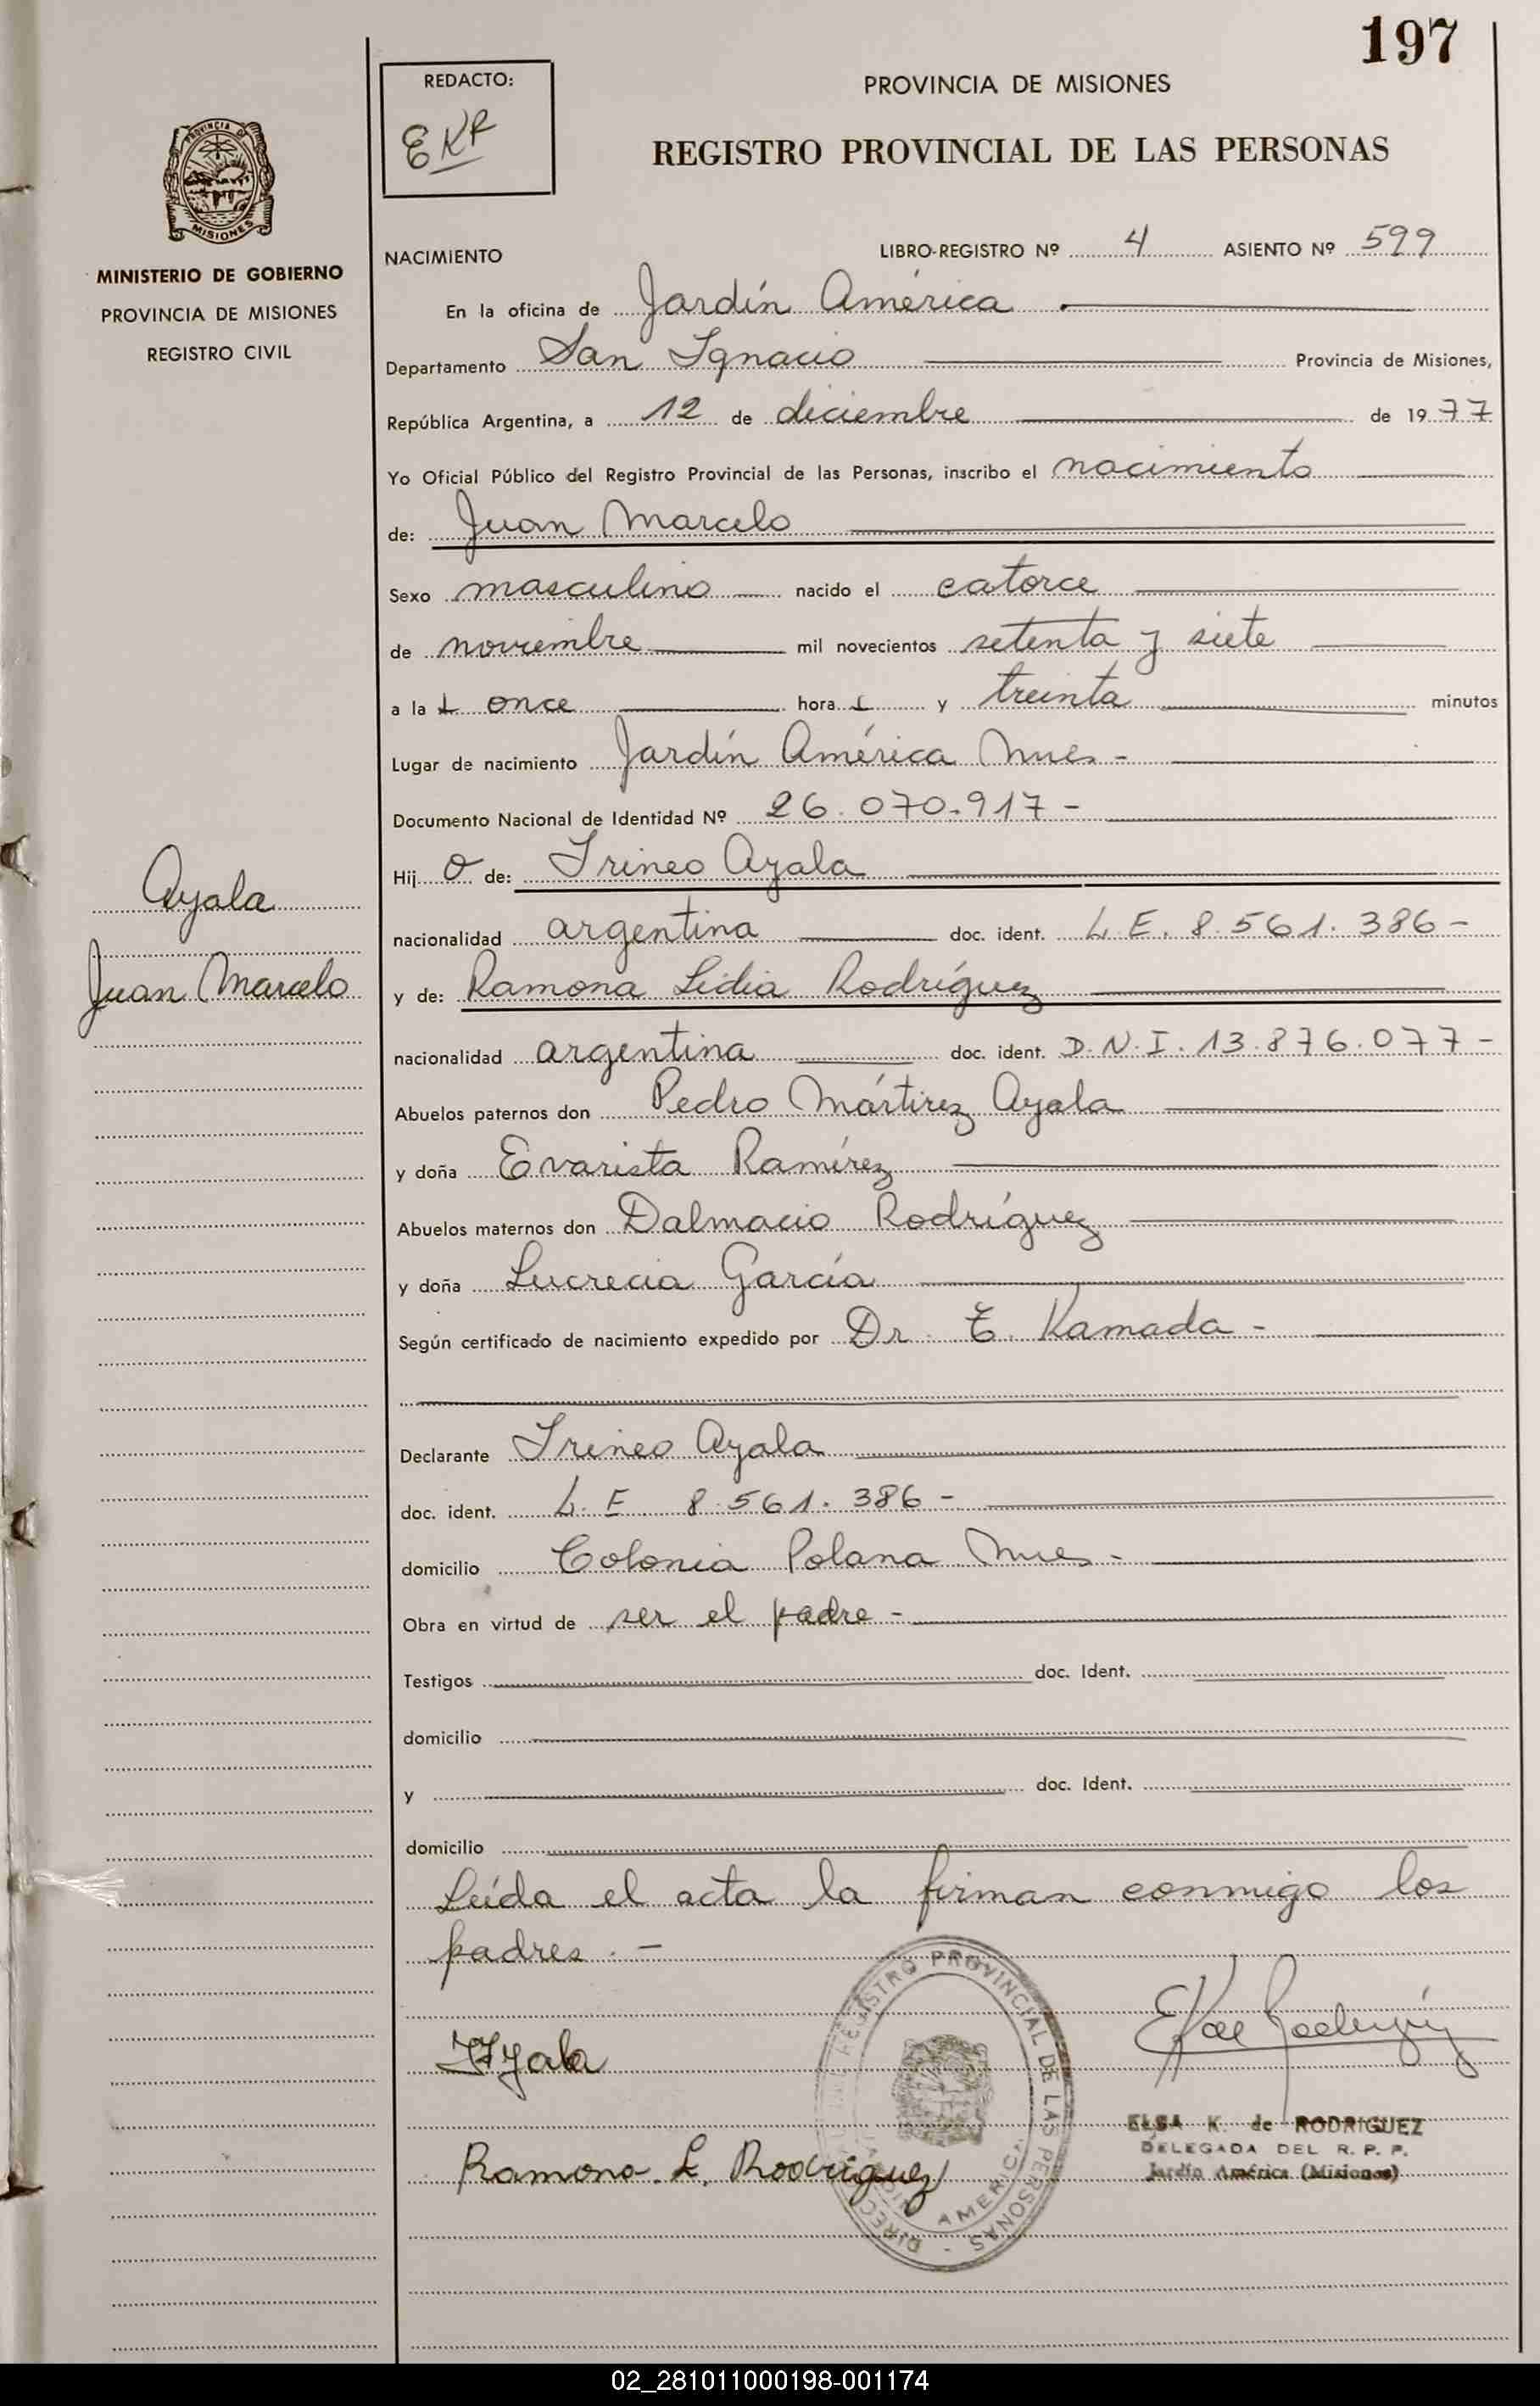 197
REDACTO:
EKR
PROVINCIA DE MISIONES
REGISTRO PROVINCIAL DE LAS PERSONAS
PROVINCIA DE
MISIONES
MINISTERIO DE GOBIERNO
PROVINCIA DE MISIONES
REGISTRO CIVIL
NACIMIENTO LIBRO-REGISTRO Nº 4 ASIENTO Nº 599
En la oficina de Jardín América
Departamento San Ignacio Provincia de Misiones,
República Argentina, a 12 de diciembre de 1977
Yo Oficial Público del Registro Provincial de las Personas, inscribo el nacimiento
de: Juan Marcelo
Sexo masculino nacido el catorce
de noviembre mil novecientos setenta y siete
a la s once hora s y treinta minutos
Lugar de nacimiento Jardín América Mnes -
Documento Nacional de Identidad Nº 26.070.917 -
Hij o de: Irineo Ayala
Ayala
Juan Marcelo
nacionalidad argentina doc. ident. L.E. 8.561.386 -
y de: Ramona Lidia Rodríguez
nacionalidad argentina doc. ident. D.N.I. 13.876.077 -
Abuelos paternos don Pedro Mártirez Ayala
y doña Evarista Ramírez
Abuelos maternos don Dalmacio Rodríguez
y doña Lucrecia García
Según certificado de nacimiento expedido por Dr. T. Kamada -
Declarante Irineo Ayala
doc. ident. L.E 8.561.386 -
domicilio Colonia Polana Mnes -
Obra en virtud de ser el padre -
Testigos doc. Ident.
domicilio
y doc. Ident.
domicilio
Leída el acta la firman conmigo los
padres. -
REGISTRO PROVINCIAL DE LAS PERSONAS
AMERICA
IAyala
EK de Rodríguez
ELSA K. de RODRIGUEZ
DELEGADA DEL R. P. P.
Jardín América (Misiones)
Ramona L. Rodriguez
02_281011000198-001174